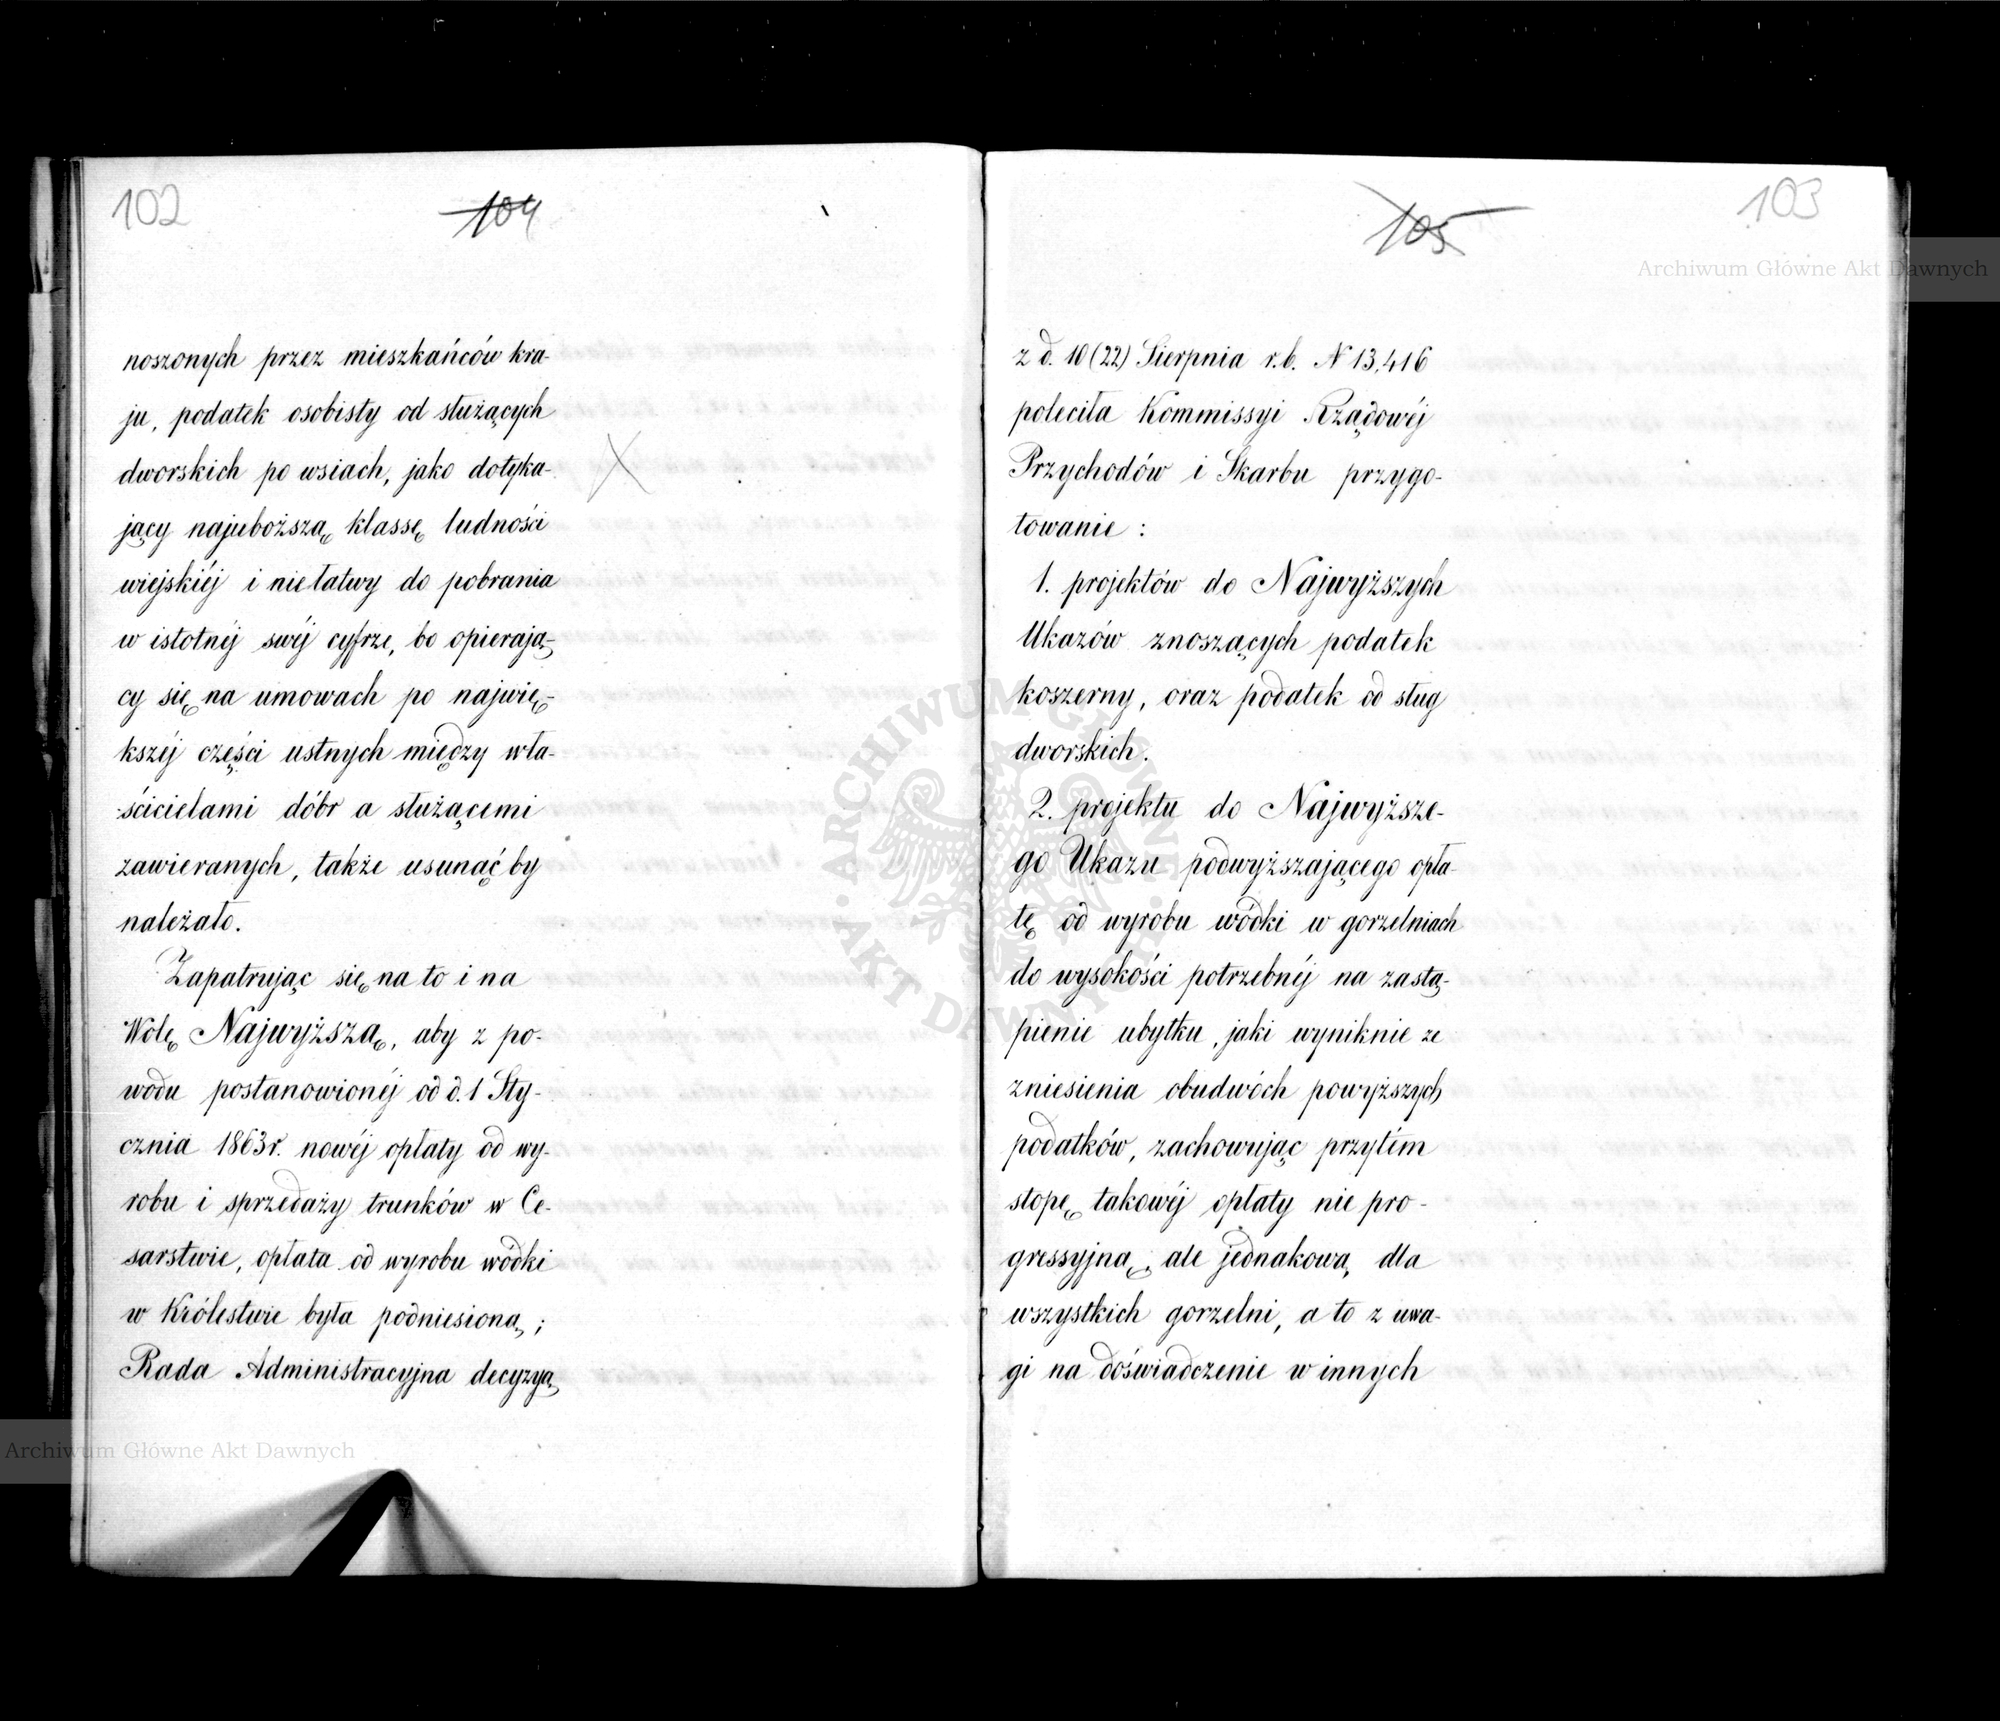 102
104
noszonych przez mieszkańców kra-
ju, podatek osobisty od służących
dworskich po wsiach, jako dotyka-
jący najuboższą klassę ludności
wiejskiéj i niełatwy do pobrania
w istotnéj swéj cyfrze, bo opierają-
cy się na umowach po najwię-
kszéj części ustnych między wła-
ścicielami dóbr a służącemi
zawieranych, także usunąć by
należało.
Zapatrując się na to i na
Wolę Najwyższą, aby z po-
wodu postanowionéj od d. 1 Sty-
cznia 1863 r. nowéj opłaty od wy-
robu i sprzedaży trunków w Ce-
sarstwie, opłata od wyrobu wódki
w Królestwie była podniesioną;
Rada Administracyjna decyzyą
105
103
z d. 10 (22) Sierpnia r. b. N 13,416
poleciła Kommissyi Rządowéj
Przychodów i Skarbu przygo-
towanie:
1. projektów do Najwyższych
Ukazów znoszących podatek
koszerny, oraz podatek od sług
dworskich.
2. projektu do Najwyższe-
go Ukazu podwyższającego opła-
tę od wyrobu wódki w gorzelniach
do wysokości potrzebnéj na zastą-
pienie ubytku, jaki wyniknie ze
zniesienia obudwóch powyższych
podatków, zachowując przytém
stopę takowéj opłaty nie pro-
gressyjną, ale jednakową dla
wszystkich gorzelni, a to z uwa-
gi na doświadczenie w innych
Archiwum Główne Akt Dawnych
Archiwum Główne Akt Dawnych
ARCHIWUM GŁÓWNE AKT DAWNYCH